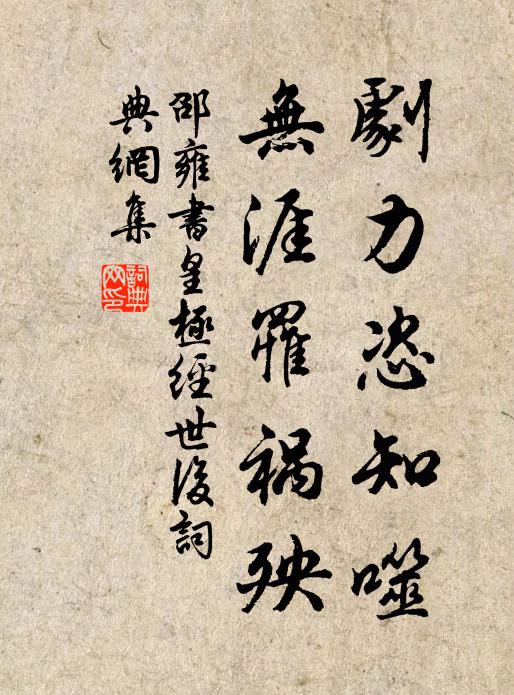 劇力恣知噬
無涯罹禍殃
邵雍書皇極經世後詞
典網集
詞典
网印